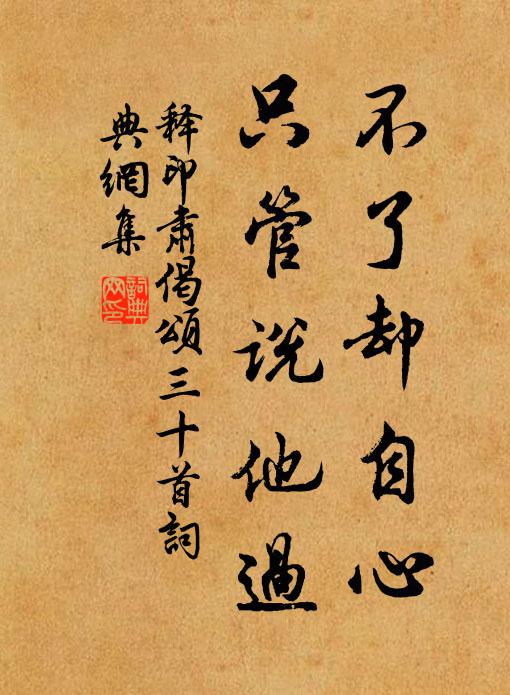 不了却自心
只管説他過
释印肃偈頌三十首詞
典網集
詞典
网印